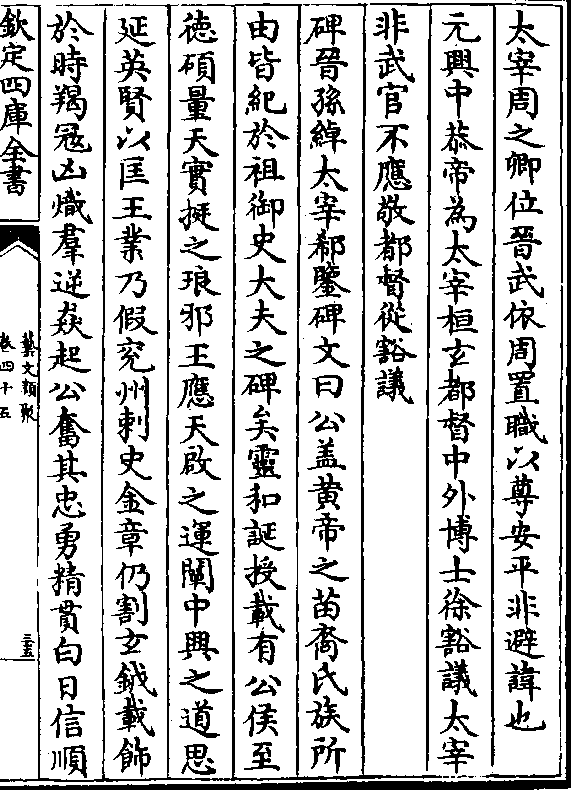 太宰周之卿位晉武依周置職以尊安平非避諱也
元興中恭帝為太宰桓玄都督中外博士徐豁議太宰
非武官不應敬都督從豁議
碑晉孫綽太宰郗鑒碑文曰公盖黄帝之苗裔氏族所
由皆紀於祖御史大夫之碑矣靈和誕授載有公侯至
徳碩量天實挺之琅邪王應天啟之運闡中興之道思
延英賢以匡王業乃假兖州刺史金章仍割玄鉞載飾
於時羯冦凶熾羣逆猋起公奮其忠勇精貫白日信順
欽定四庫全書
藝文類聚
卷四十五
三五